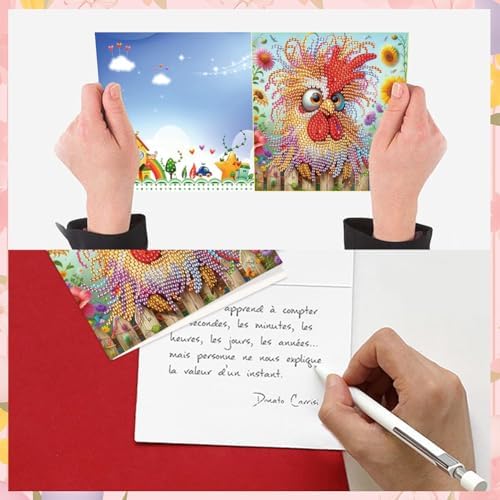 apprend à compter
secondes, les minutes, les
heures, les jours, les années...
mais personne ne nous explique
la valeur d'un instant.
Donato Carrisi